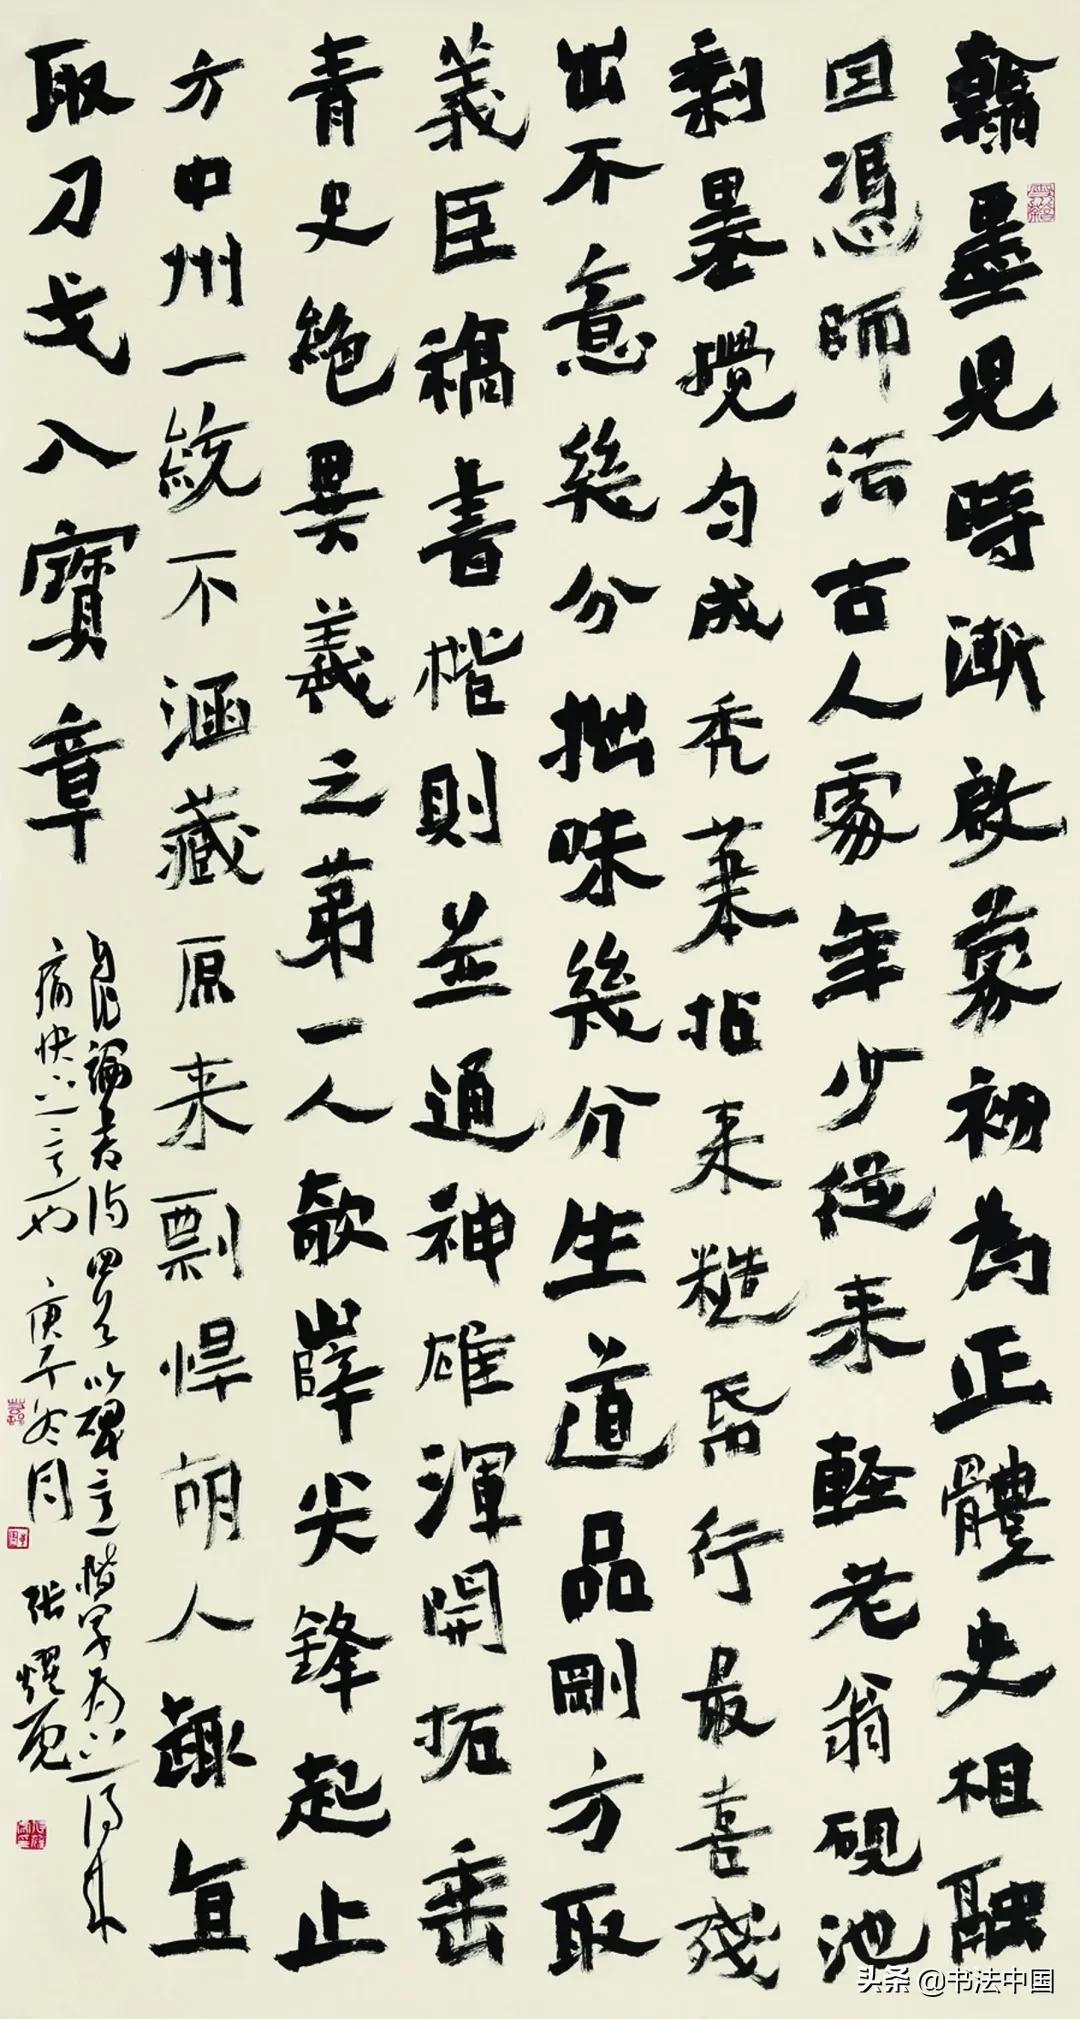 翰墨見時漸啟蒙初為正體史相融
因憑師法古人處年少從来輕老翁硯池
剩墨攪勻成禿筆拈来糙紙行最喜殘
出不意幾分拙味幾分生道品剛方取
義臣稿書楷則並通神雄渾開拓垂
青史絕異羲之第一人欹薛尖鋒起止
方中州一統不涵藏原来剽悍胡人趣直
取刀戈入寶章
論書詩四首以碑意楷写為之
痛快之意也 庚子冬月 張耀
头条 @书法中国